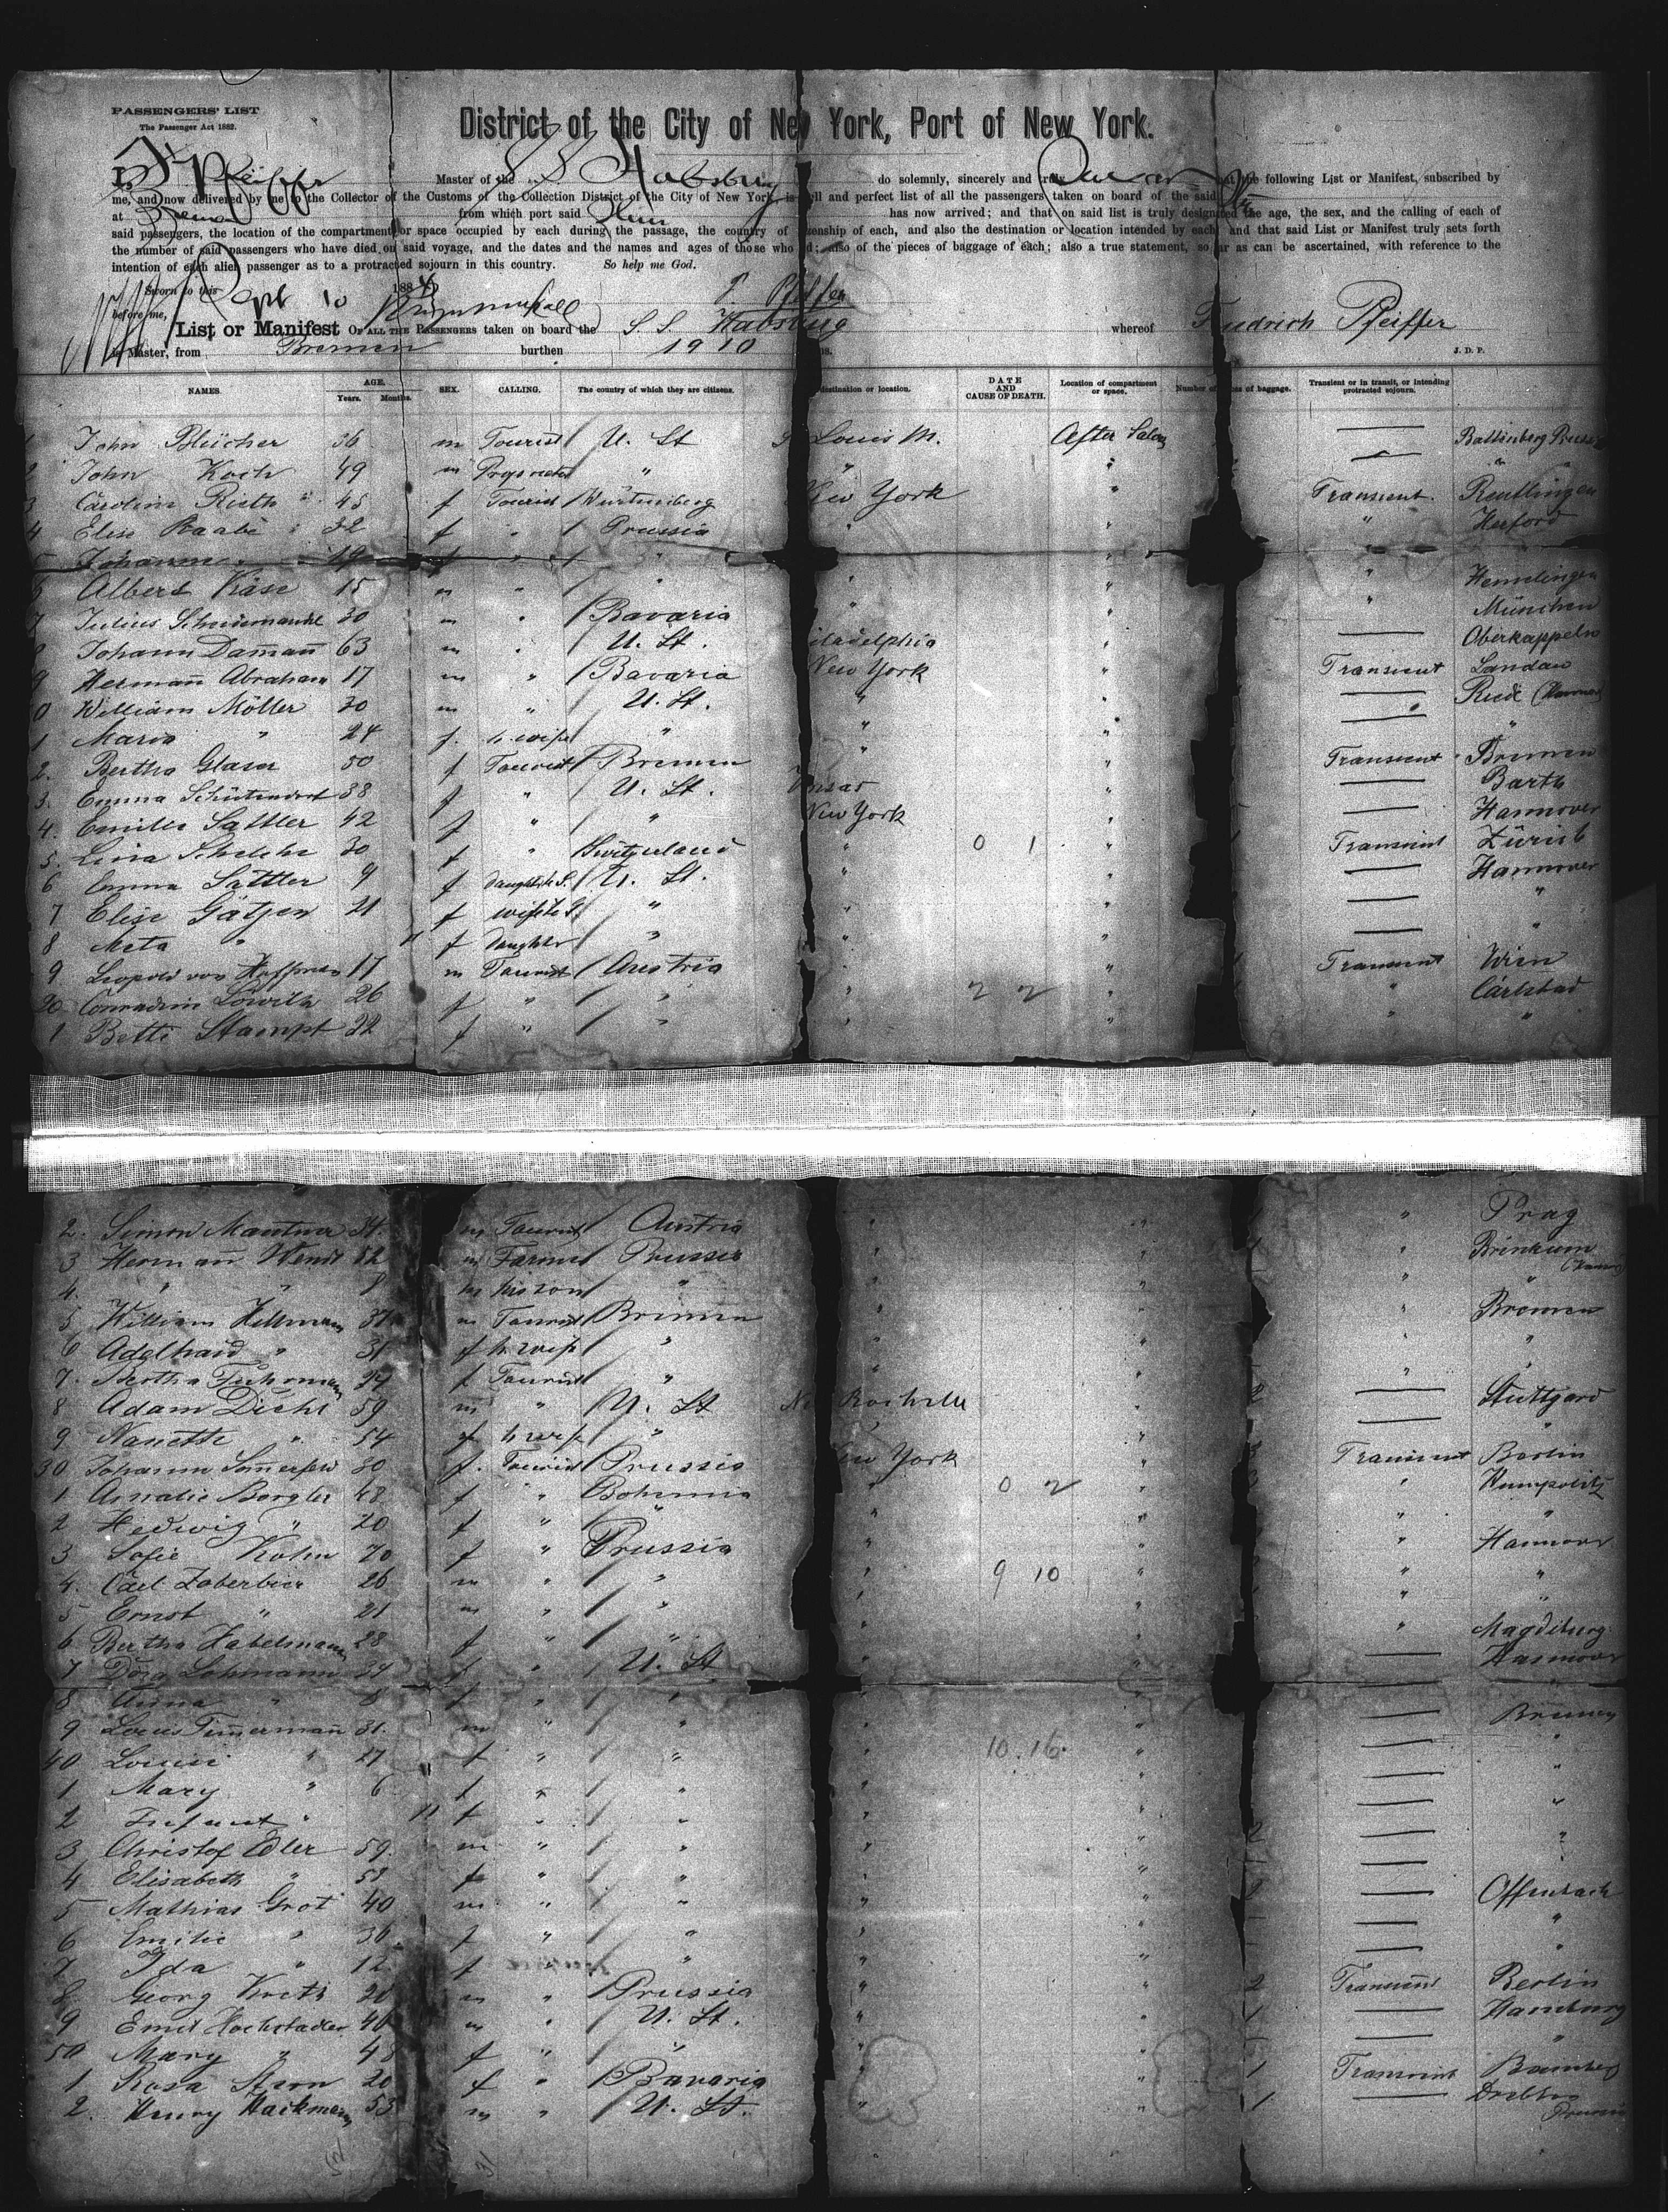 PASSENGERS' LIST
The Passenger Act 1882.
District of the City of New York, Port of New York.
I, F. Pfeiffer Master of the SS Habsburg do solemnly, sincerely and truly Swear that the following List or Manifest, subscribed by
me, and now delivered by me to the Collector of the Customs of the Collection District of the City of New York, is full and perfect list of all the passengers taken on board of the said
at Bremen from which port said has now arrived; and that on said list is truly designated the age, the sex, and the calling of each of
said passengers, the location of the compartment or space occupied by each during the passage, the country of citizenship of each, and also the destination or location intended by each and that said List or Manifest truly sets forth
the number of said passengers who have died on said voyage, and the dates and the names and ages of those who died; also of the pieces of baggage of each; also a true statement, so far as can be ascertained, with reference to the
intention of each alien passenger as to a protracted sojourn in this country. So help me God.
Sworn to this Sept 10 188
before me, F. Pfeiffer
List or Manifest OF ALL THE PASSENGERS taken on board the S S. Habsburg whereof Friedrich Pfeiffer
is Master, from Bremen burthen 1910 J. D. P.
NAMES. AGE. Years. Months. SEX. CALLING. The country of which they are citizens. destination or location. DATE AND CAUSE OF DEATH. Location of compartment or space. Number of of baggage. Transient or in transit, or intending protracted sojourn.
1 John Blücher 36 m Tourist U. St Louis M. After Salon
2 John Koch 49 m " " "
3 Caroline Rieth 45 f Tourist Würtemberg New York " Transient Reutlingen
4 Elise Raabe 32 f " Prussia " " " Herford
5 Johanne " 19 f " " "
6 Albert Käse 15 m " " " " " Hemelingen
7 Julius 30 m " Bavaria " " " München
8 Johann Damañ 63 m " U. St. Philadelphia " — Oberkappeln
9 Hermañ Abraham 17 m " Bavaria New York " Transient Landau
0 William Möller 30 m " U. St. " " —
1 Maria " 24 f. h. wife " " " — "
2. Bertha Glaser 50 f Tourist Bremen " " Transient Bremen
3. Emma 38 f " U. St. " — Barth
4. Emilie Sattler 42 f " " New York " — Hannover
5. Lina 30 f " Switzerland " 0 1 " Transient Zürich
6 Emma Sattler 9 f U. St. " " — Hannover
7 Elise Gätjen 21 f " " " — "
8 Meta " 11 f daughter " " " — "
9 Leopold von 17 m Tourist Austria " " Transient Wien
20 Löwith 26 f " " " 2 2 " " Carlsbad
1 Betti Stampf 22 f " " " " " "
2. Simon Mautner 34. m Tourist Austria " " 1 " Prag
3 Hermañ Wendt 52 m Farmer Prussia " " 1 " Brinkum
4. " " 8 m his son " " " " "
5 William Hillmann 37 m Tourist Bremen " " " Bremen
6 Adelhaid " 31 f h. wife " " " " "
7. Bertha Fuhrmann 24 f Tourist " " " "
8 Adam Diehl 59 m " U. St New Rochelle " 2 — Stuttgard
9 Nanette " 54 f h wife " " " — "
30 Johanne 30 f. Tourist Prussia New York " Transient Berlin
1 Amalie Bergler 48 f " Bohemia " 0 2 " 3 " Humpolitz
2 Hedwig " 20 f " " " " " "
3 Sofie Kohn 70 f " Prussia " " " Hannover
4. Carl Zaberbier 26 m " " " 9 10 " " "
5 Ernst " 21 m " " " " "
6 Bertha Habelmann 28 f " " " " " Magdeburg
7 Dora Lohmann 34 f " U. St " " — Hannover
8 Anna " 8 f " " " " — "
9 Louis Timmermañ 31. m " " " " — Bremen
40 Louise " 27 f " " " 10. 16. " — "
1 Mary " 6 f " " " " — "
2 Infant " 11 f " " " " — "
3 Christof Edler 59. m " " " " 2 — "
4 Elisabeth " 58 f " " " " —
5 Mathias Grot 40 m " " " " 2 — Offenbach
6 Emilie " 36 f " " " " — "
7 Ida " 12 f " " " — "
8 Georg 20 m " Prussia " " 2 Transient Berlin
9 Emil Hochstadter 46 m " U. St. " " 1 — Hamburg
50 Mary " 48 f " " " " — "
1 Rosa Stern 20 f " Bavaria " " 1 Transient Bamberg
2. Henry Hackmann 53 m " U. St. " " 1 —